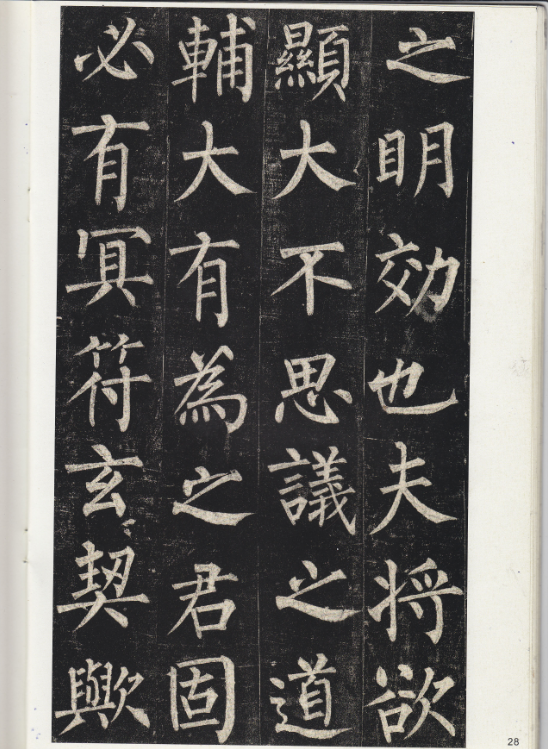 之明効也夫将欲
顯大不思議之道
輔大有為之君固
必有冥符玄契歟
28